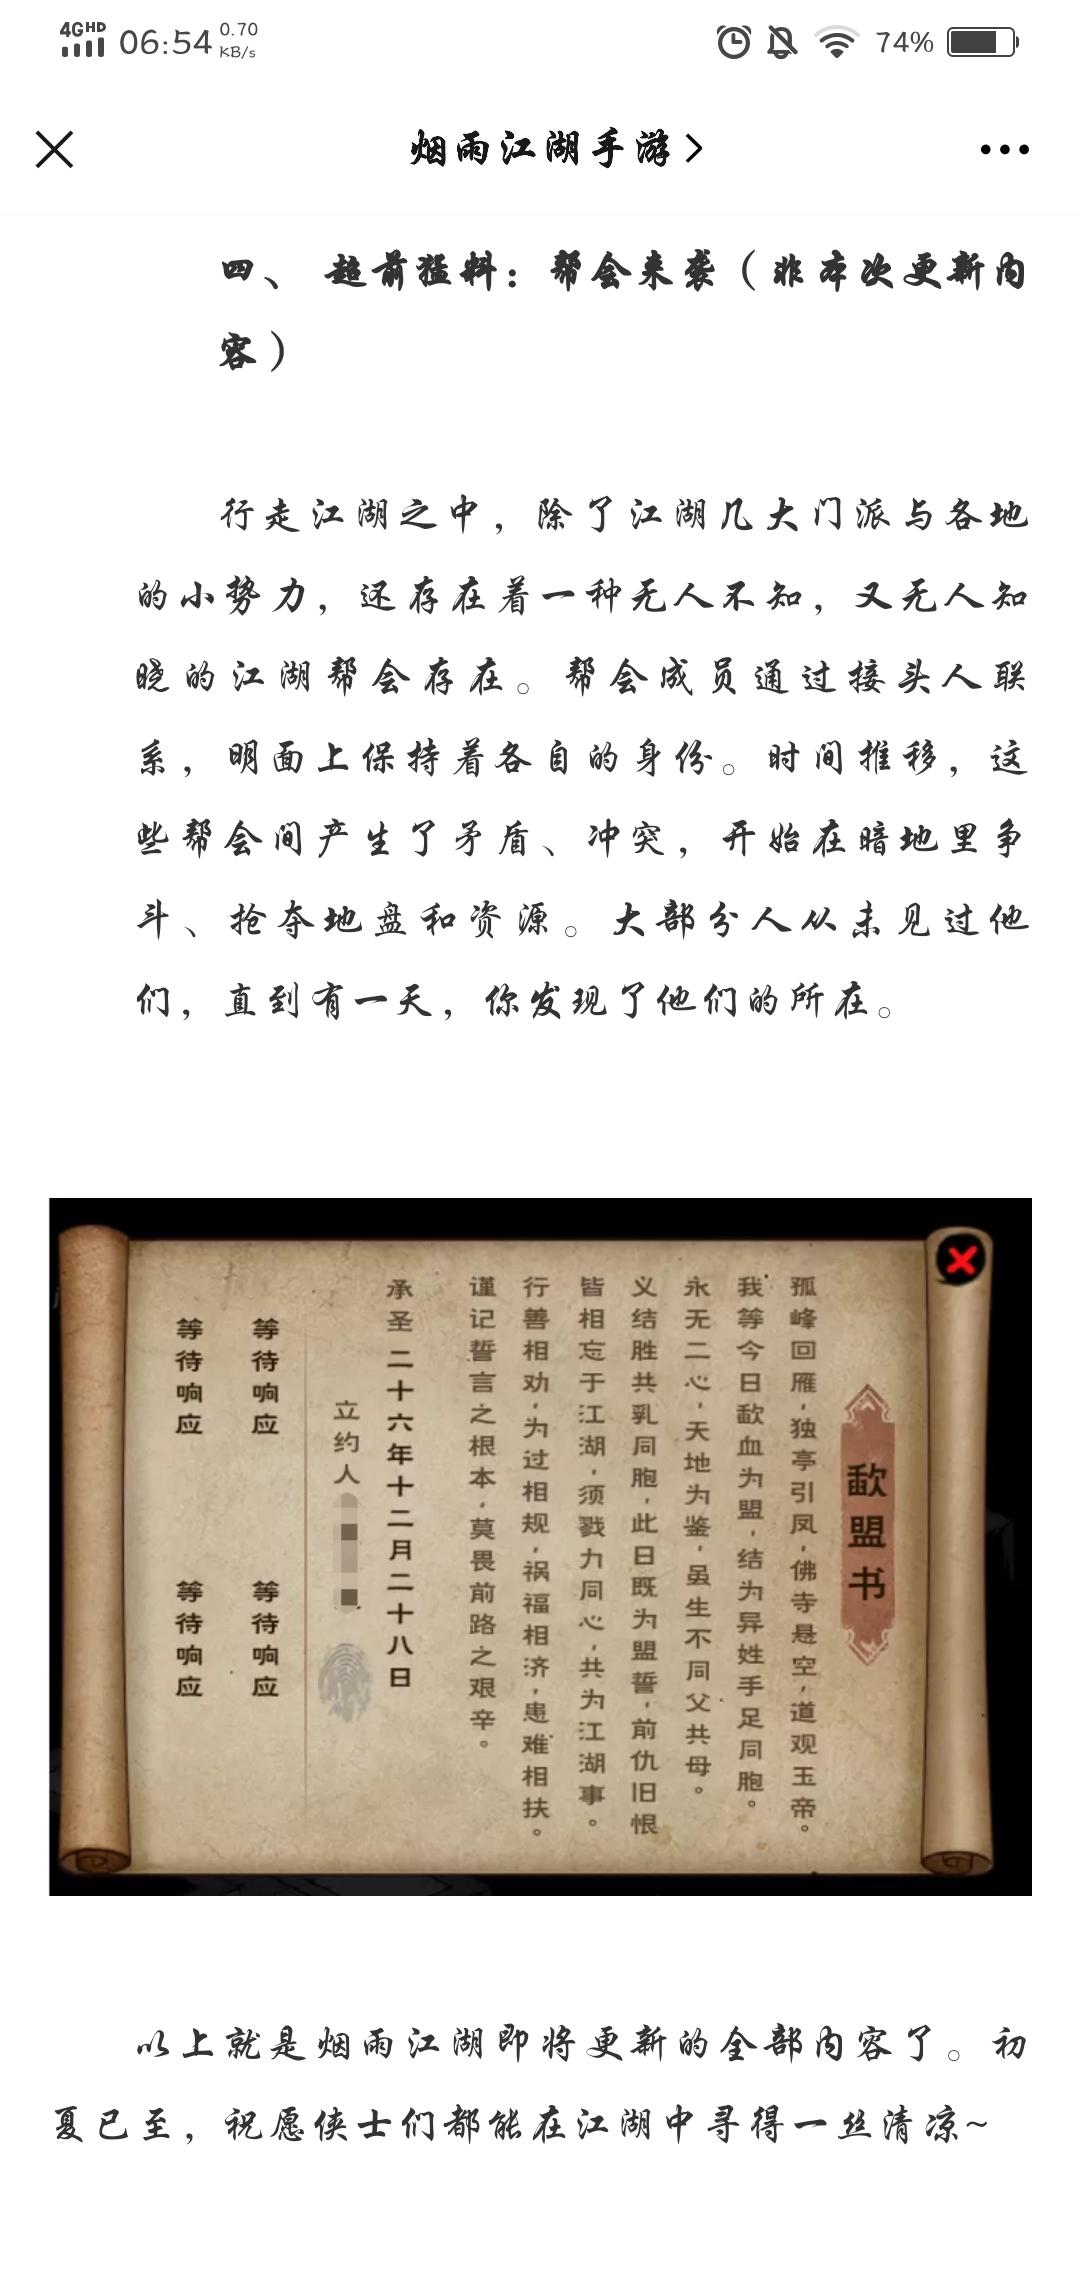 4GHD 06:54 0.70 KB/s 74%
烟雨江湖手游
四、 超前猛料：帮会来袭（非本次更新内
容）
行走江湖之中，除了江湖几大门派与各地
的小势力，还存在着一种无人不知，又无人知
晓的江湖帮会存在。帮会成员通过接头人联
系，明面上保持着各自的身份。时间推移，这
些帮会间产生了矛盾、冲突，开始在暗地里争
斗、抢夺地盘和资源。大部分人从未见过他
们，直到有一天，你发现了他们的所在。
歃盟书
孤峰回雁，独亭引凤，佛寺悬空，道观玉帝。
我等今日歃血为盟，结为异姓手足同胞。
永无二心，天地为鉴，虽生不同父共母。
义结胜共乳同胞，此日既为盟誓，前仇旧恨
皆相忘于江湖，须戮力同心，共为江湖事。
行善相劝，为过相规，祸福相济，患难相扶。
谨记誓言之根本，莫畏前路之艰辛。
承圣二十六年十二月二十八日
立约人
等待响应
等待响应
等待响应
等待响应
以上就是烟雨江湖即将更新的全部内容了。初
夏已至，祝愿侠士们都能在江湖中寻得一丝清凉~